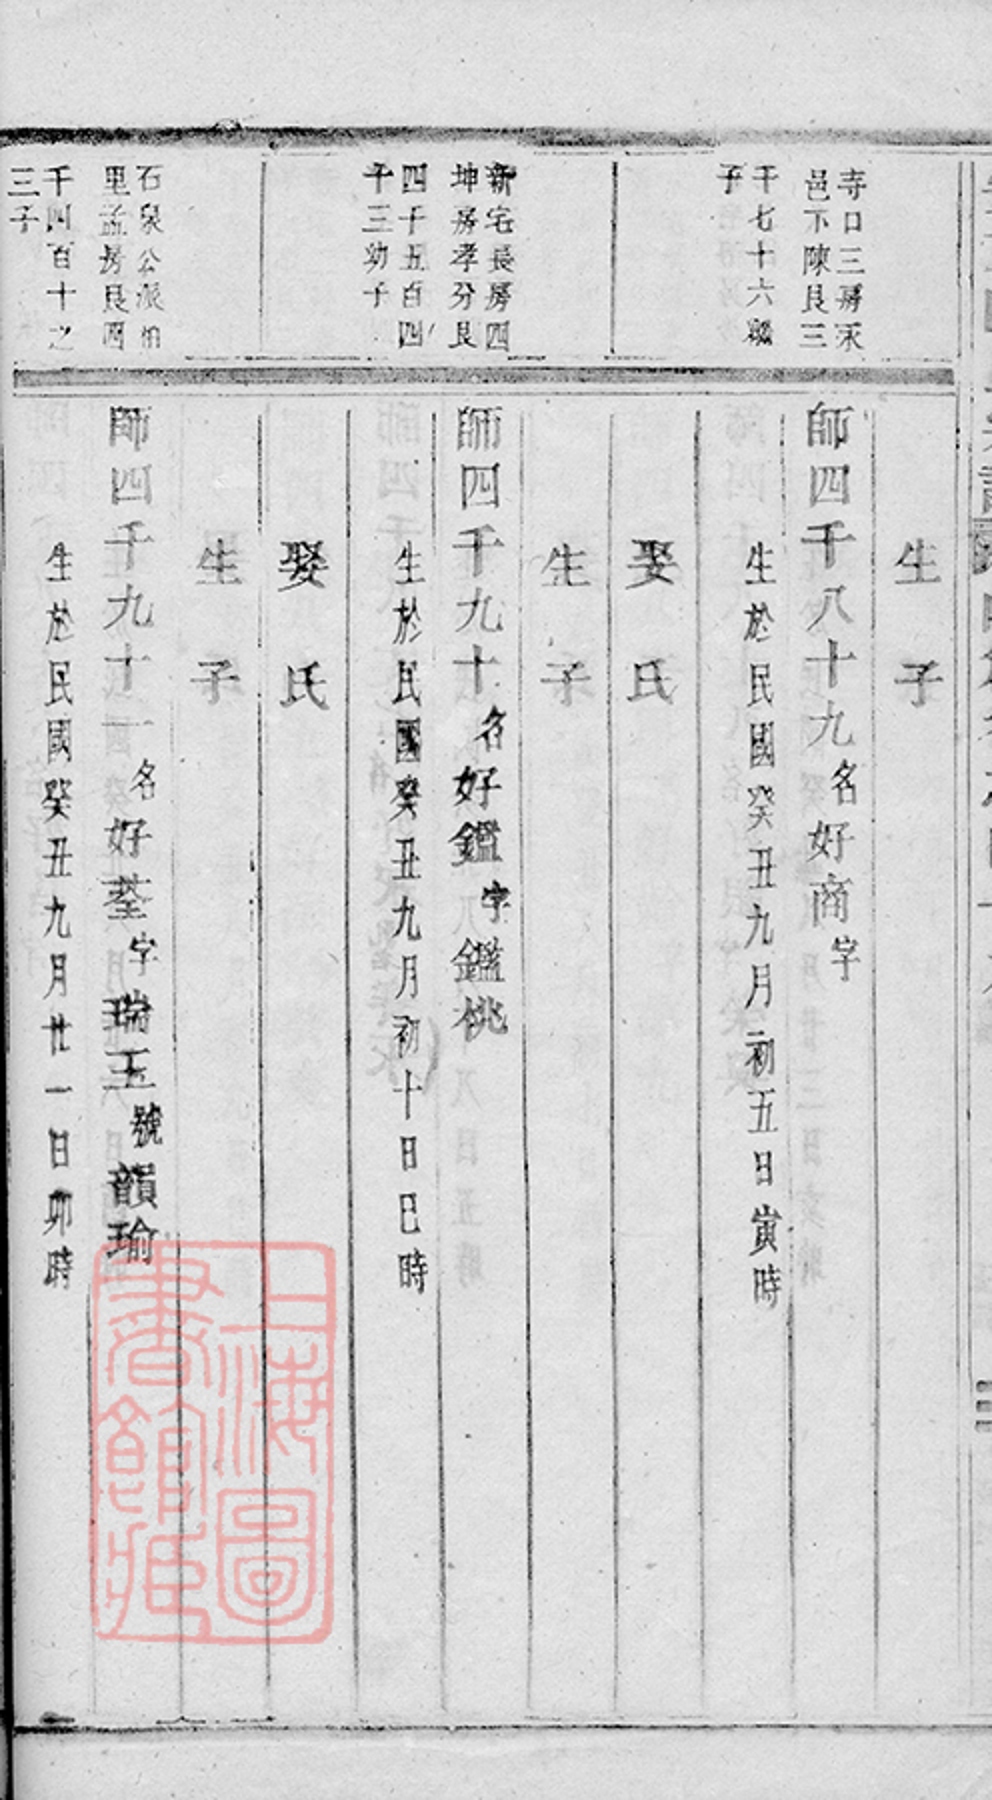 生 子
寺口三房禾
邑下陳良三
千七十六繼
子
師四千八十九名好商字
生於民國癸丑九月初五日寅時
娶 氏
生 子
新宅長房四
坤房孝分良
四千五百四
十三幼子
師四千九十名好鑑字鑑桃
生於民國癸丑九月初十日巳時
娶 氏
生 子
石泉公派怕
里孟房良四
千四百十之
三子
師四千九十一名好荃字瑞玉號韻瑜
生於民國癸丑九月廿一日卯時
上海圖書館藏